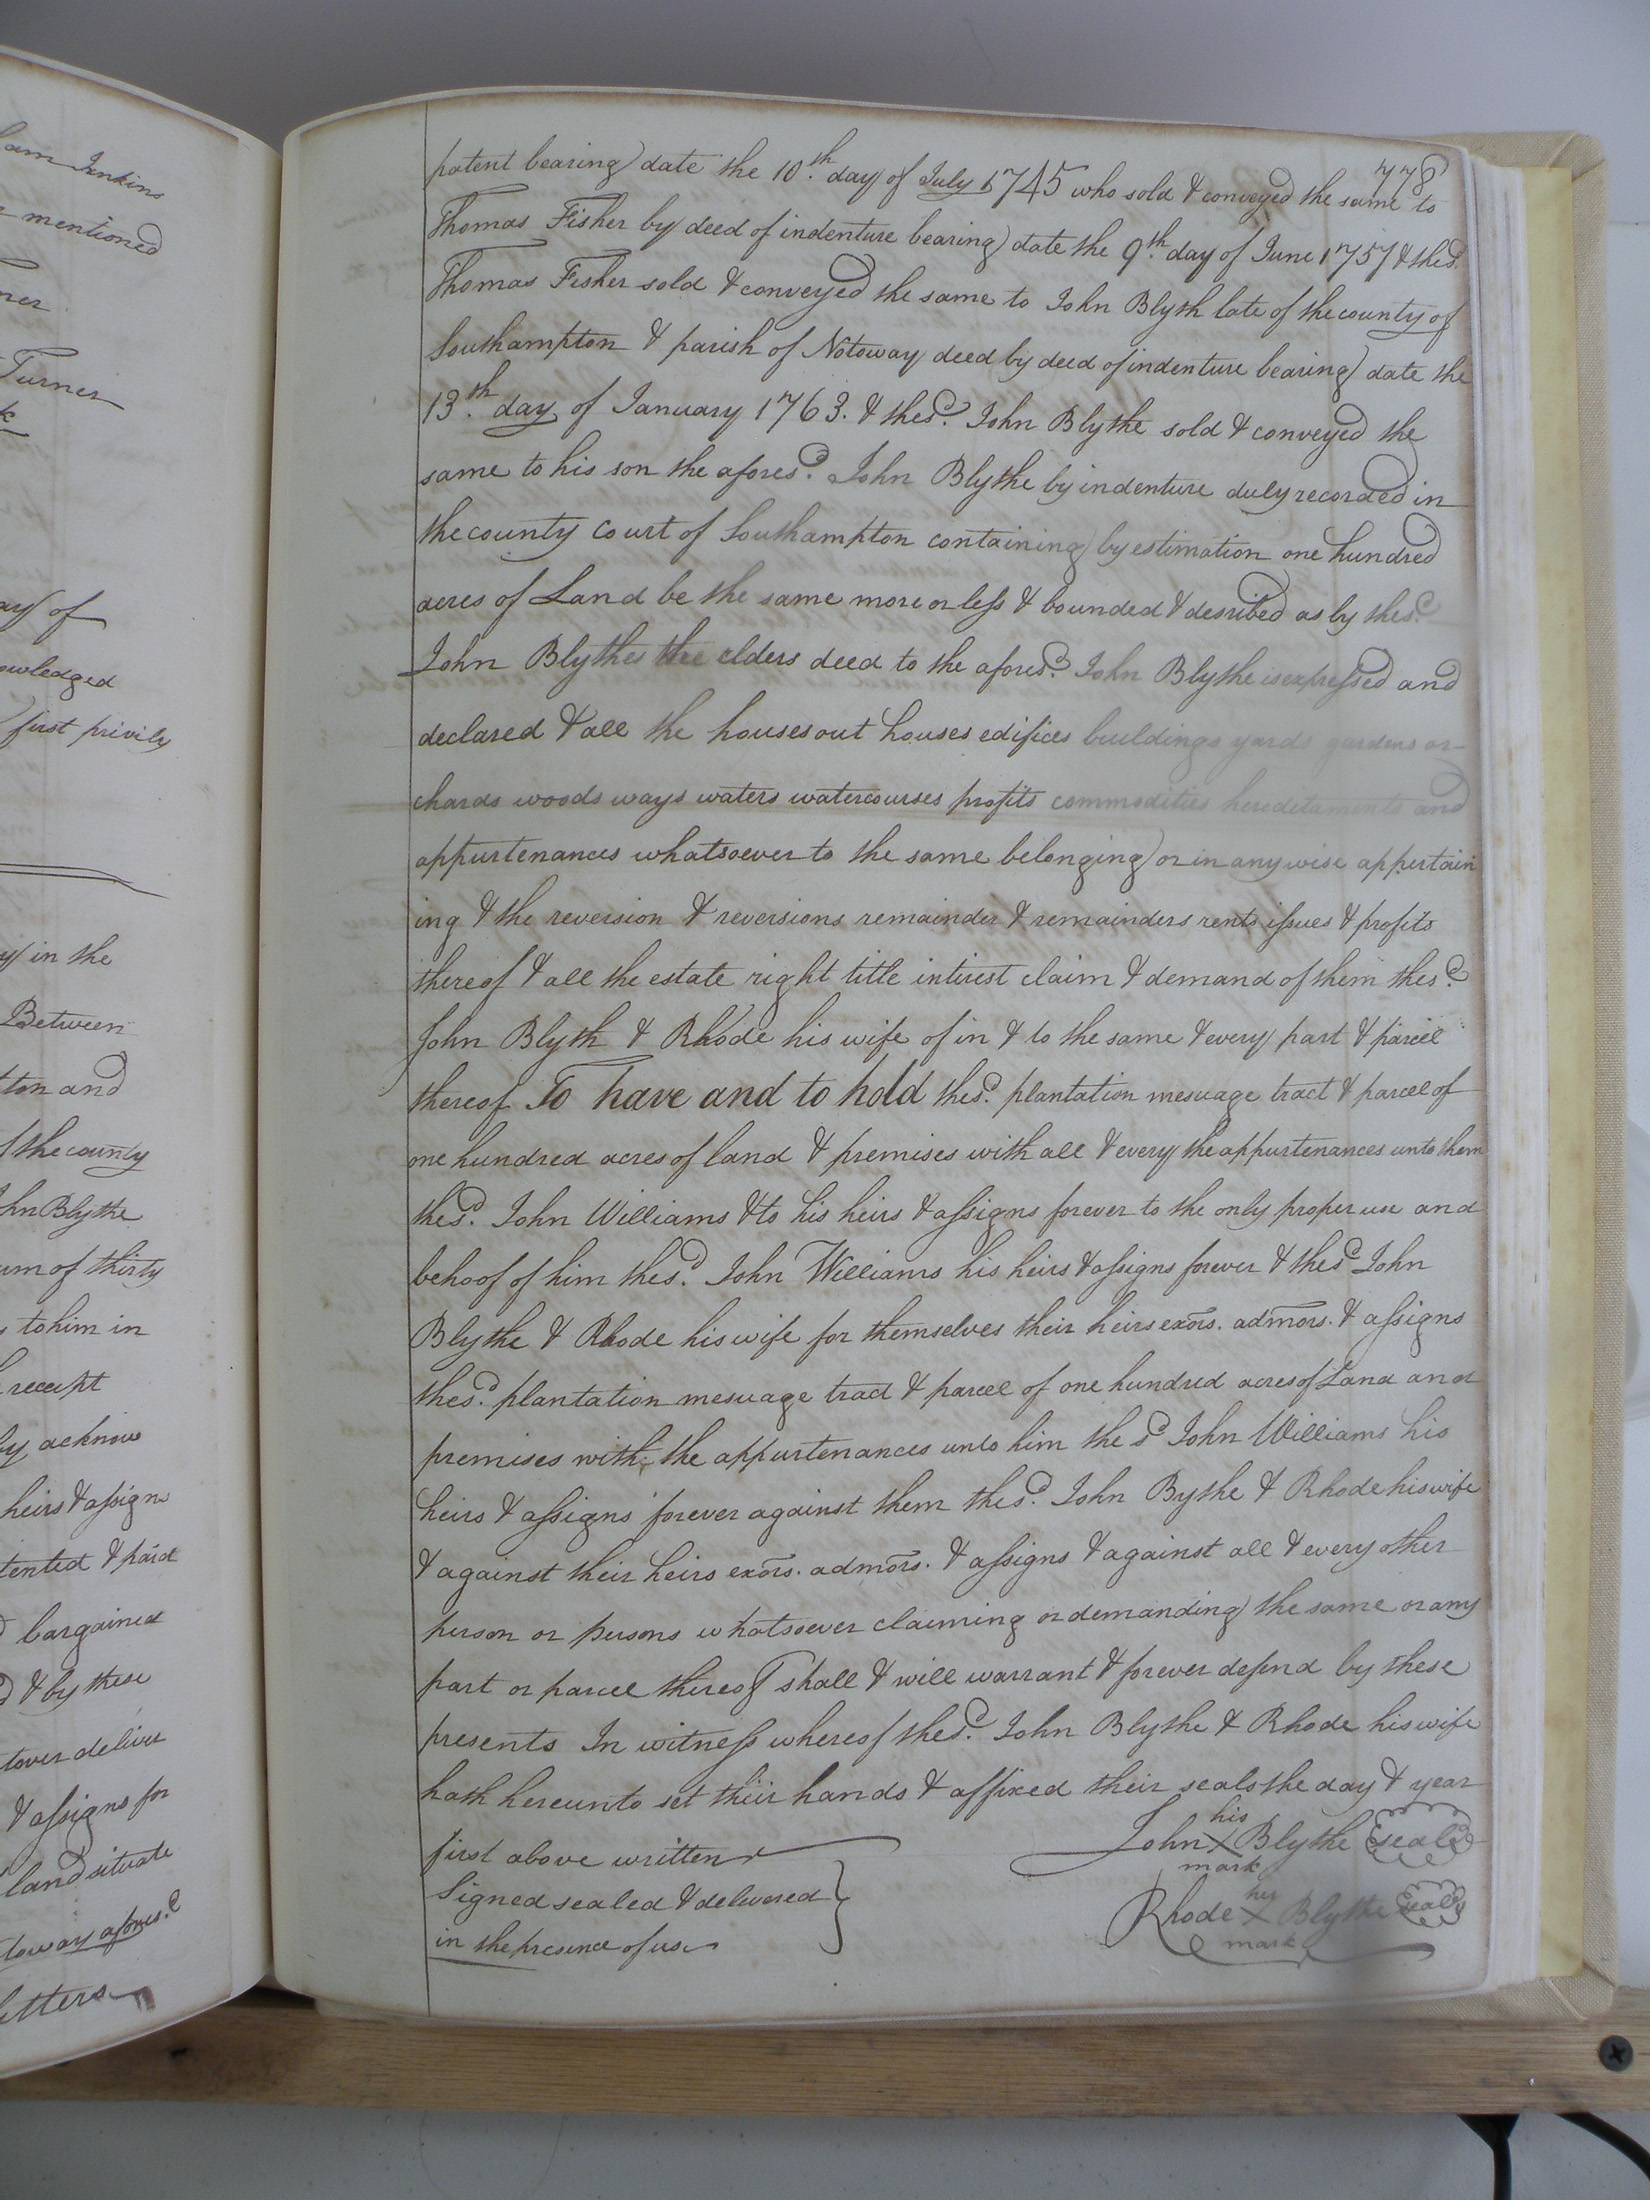 am Jenkins
mentioned
ner
Turner
k
ay of
owledged
first privily
y in the
Between
ton and
f the county
hn Blythe
um of thirty
s to him in
receipt
by acknow
heirs & assigns
tented & paid
d bargained
d & by these
tover deliver
& assigns for
land situate
toway afores.d
letters
778
patent bearing date the 10.th day of July 1745 who sold & conveyed the same to
Thomas Fisher by deed of indenture bearing date the 9.th day of June 1757 & the s.d
Thomas Fisher sold & conveyed the same to John Blyth late of the county of
Southampton & parish of Notoway deed by deed of indenture bearing date the
13.th day of January 1763. & the s.d John Blythe sold & conveyed the
same to his son the afores.d John Blythe by indenture duly recorded in
the county court of Southampton containing by estimation one hundred
acres of Land be the same more or less & bounded & desribed as by the s.d
John Blythes the elders deed to the afores.d John Blythe is expressed and
declared & all the houses out houses edifices buildings yards gardens or-
chards woods ways waters watercourses profits commodities hereditaments and
appurtenances whatsoever to the same belonging or in any wise appertain
ing & the reversion & reversions remainder & remainders rents issues & profits
thereof & all the estate right title interest claim & demand of them the s.d
John Blyth & Rhode his wife of in & to the same & every part & parcel
thereof To have and to hold the s.d plantation mesuage tract & parcel of
one hundred acres of land & premises with all & every the appurtenances unto them
the s.d John Williams & to his heirs & assigns forever to the only proper use and
behoof of him the s.d John Williams his heirs & assigns forever & the s.d John
Blythe & Rhode his wife for themselves their heirs exors. admors. & assigns
the s.d plantation mesuage tract & parcel of one hundred acres of Land and
premises with the appurtenances unto him the s.d John Williams his
heirs & assigns forever against them the s.d John Bythe & Rhode his wife
& against their heirs exors. admors. & assigns & against all & every other
person or persons whatsoever claiming or demanding the same or any
part or parcel thereof shall & will warrant & forever defend by these
presents In witness whereof the s.d John Blythe & Rhode his wife
hath hereunto set their hands & affixed their seals the day & year
first above written
his
John X Blythe seal
mark
Signed sealed & delivered
in the presence of us
her
Rhode X Blythe seal
mark